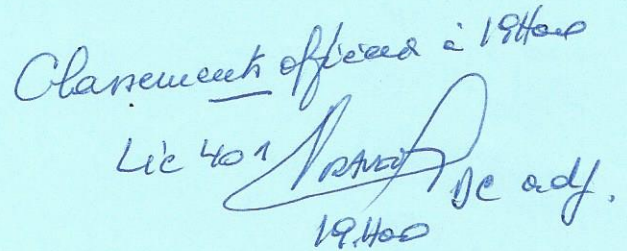 Classements officiels à 19H00
Lic 401 DC adj.
19H00